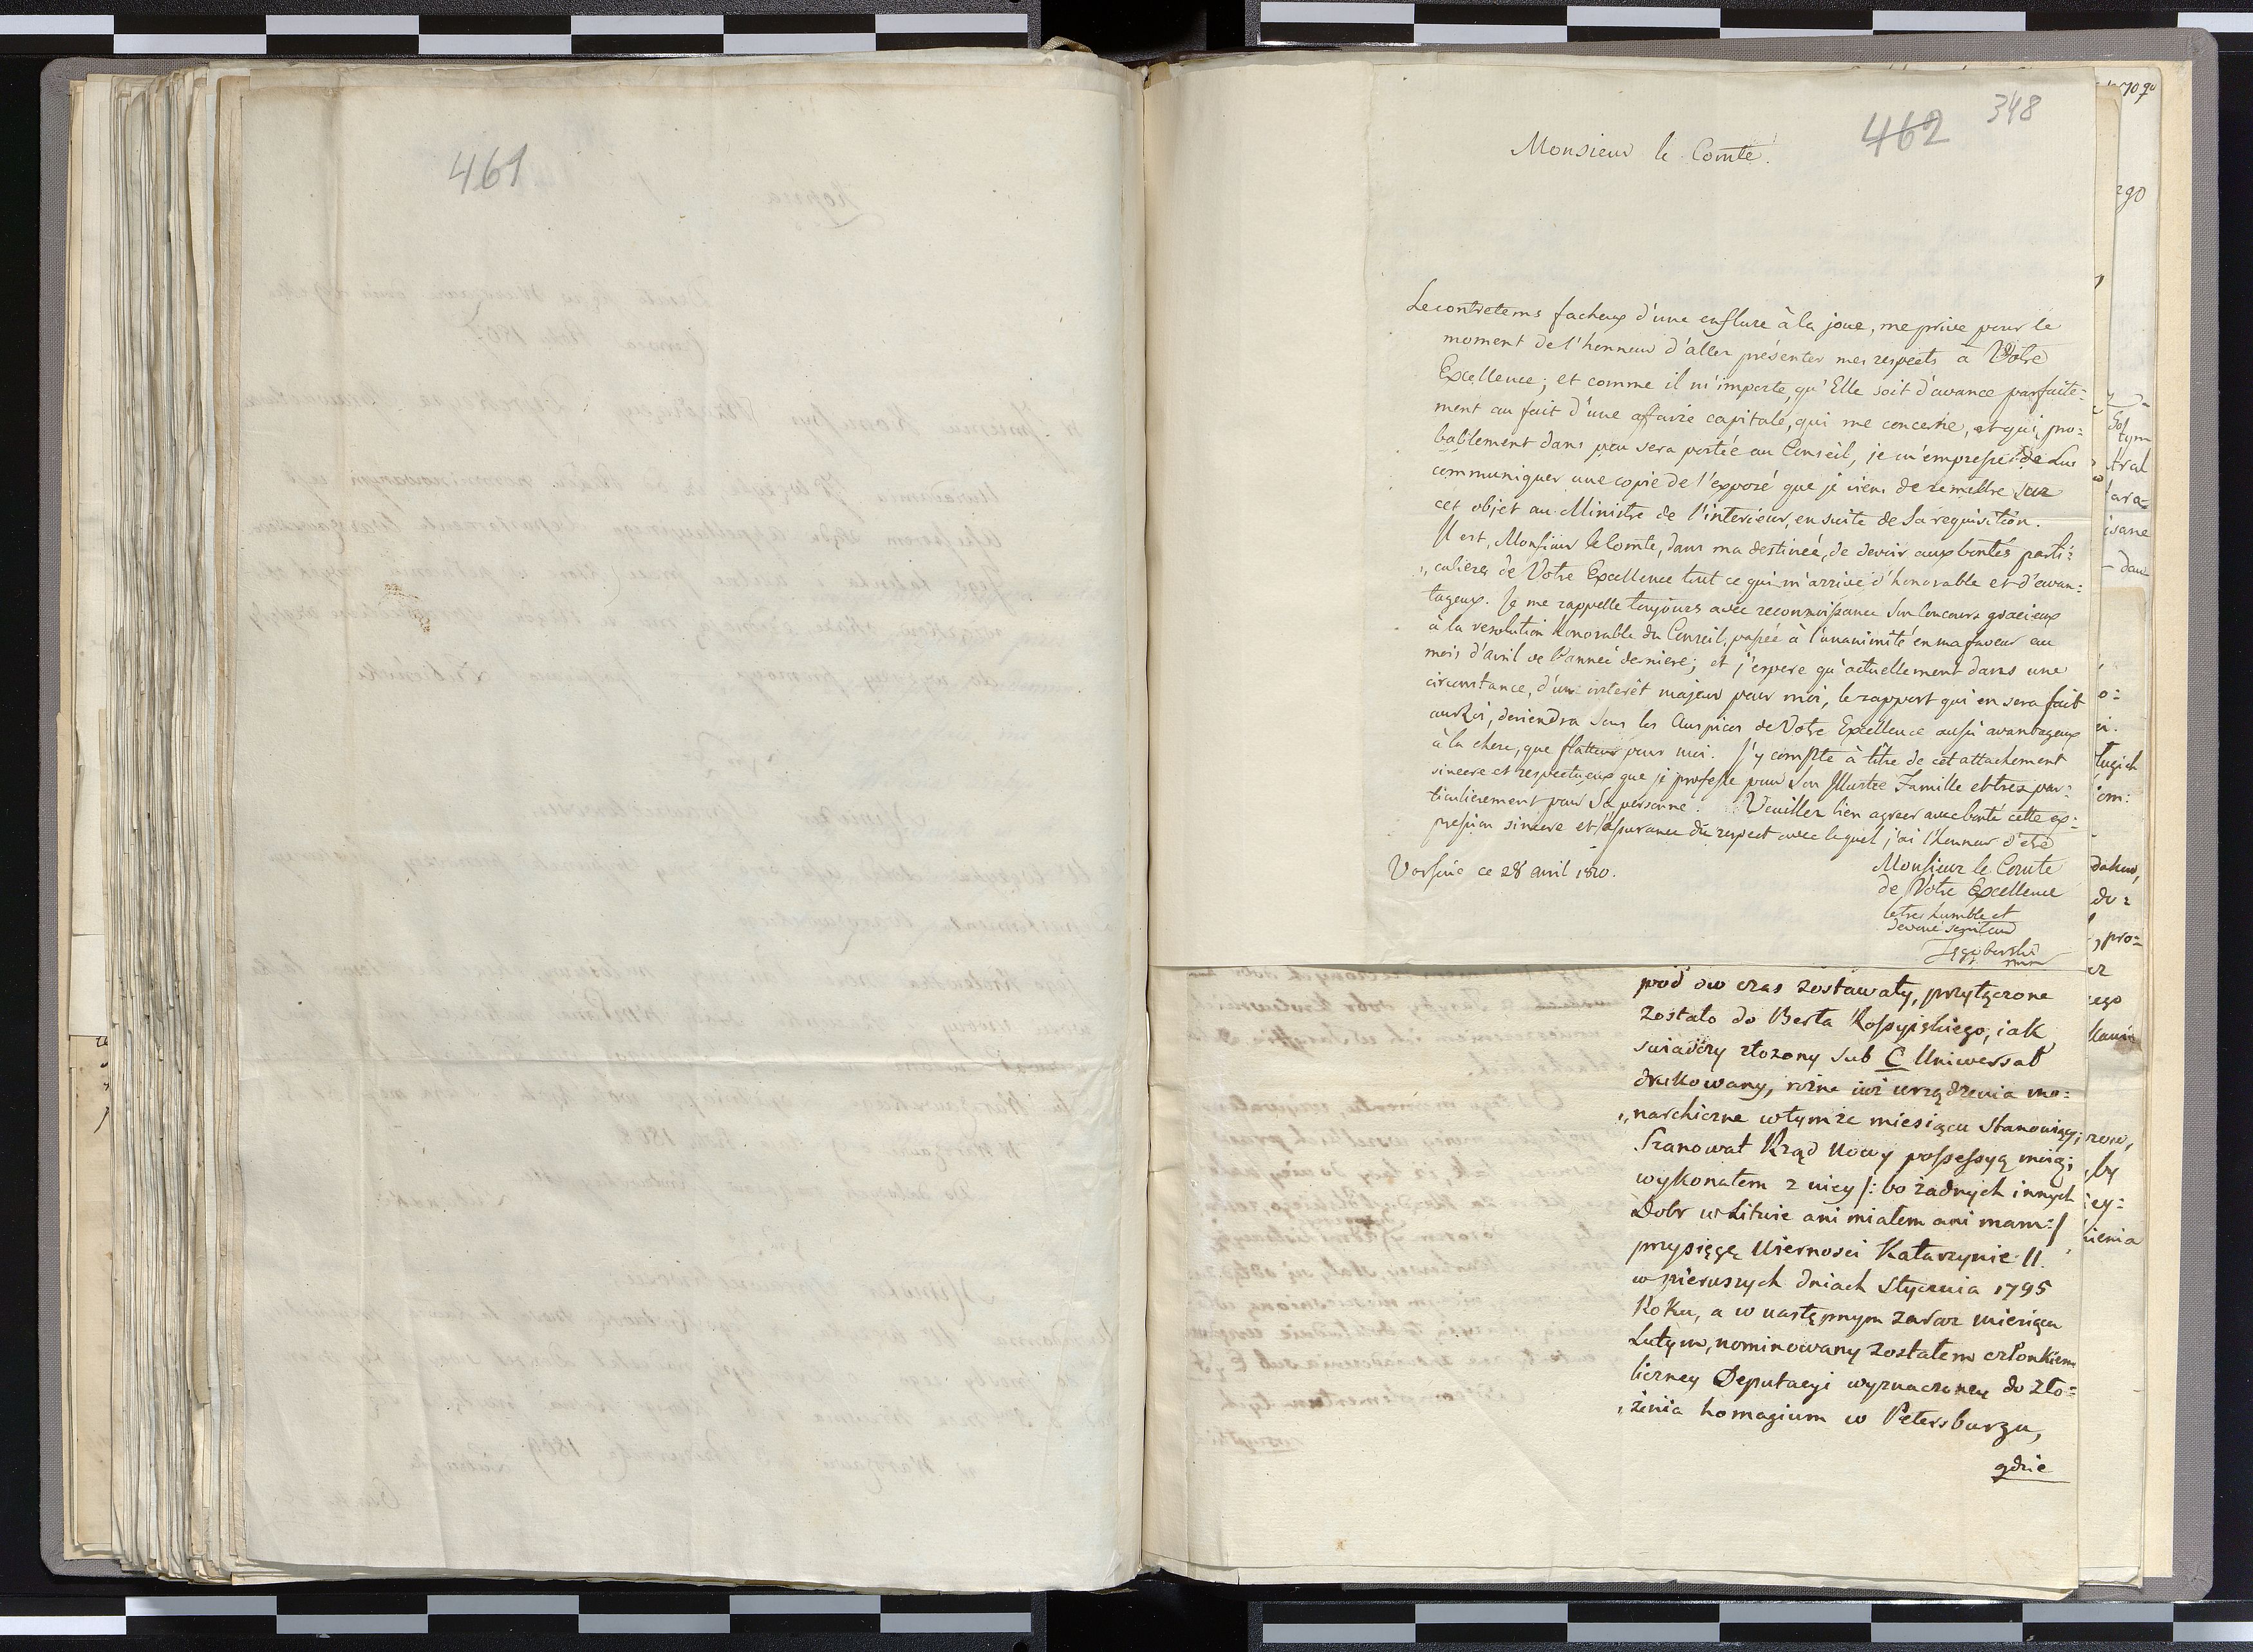 461
462 348
Monsieur le Comte!
Le contretems facheux d'une enflure à la joue, me prive pour le
moment de l'honneur d'aller présenter mes respects à Votre
Excellence; et comme il m'importe, qu'Elle soit d'avance parfaite=
ment au fait d'une affaire capitale, qui me concerne, et qui, pro=
bablement dans peu sera portée au Conseil, je m'empresse de Lui
communiquer une copie de l'exposé que je viens de remettre sur
cet objet au Ministre de l'interieur, en suite de Sa requisition.
Il est, Monsieur le Comte, dans ma destinée, de devoir aux bontés parti=
„culieres de Votre Excellence tout ce qui m'arrive d'honorable et d'avan=
tageux. Je me rappelle toujours avec reconnoissance Son Concours gracieux
à la resolution honorable du Conseil, passée à l'unanimité en ma faveur au
mois d'avril de l'année derniere; et j'espere qu'actuellement dans une
circonstance, d'un interêt majeur pour moi, le rapport qui en sera fait
au Roi, deviendra sous les Auspices de Votre Excellence aussi avantageux
à la chose, que flatteur pour moi. J'y compte à titre de cet attachement
sincere et respectueux que je professe pour Son Illustre Famille et tres par=
ticulierement pour Sa personne. Veuillez bien agreer avec bonté cette ex=
pression sincere et l'assurance du respect avec lequel j'ai l'honneur d'etre
Varsovie ce 28 avril 1810.
Monsieur le Comte
de Votre Excellence
le tres humble et
devoué serviteur
pod ow czas zostawały, przyłączone
zostało do Berła Rossyiskiego, iak
swiadczy złozony sub C Uniwersał
drukowany, rożne iuż urządzenia mo=
„narchiczne w tymże miesiącu stanowiący;
Szanował Rząd Nowy possessyą moią;
wykonałem z niey /: bo żadnych innych
Dobr w Litwie ani miałem ani mam :/
przysięgę Wiernosci Katarzynie II.
w pierwszych dniach Stycznia 1795
Roku, a w następnym zaraz miesiącu
Lutym, nominowany zostałem członkiem
liczney Deputacyi wyznaczoney do zło=
„żenia homagium w Petersburgu,
gdzie